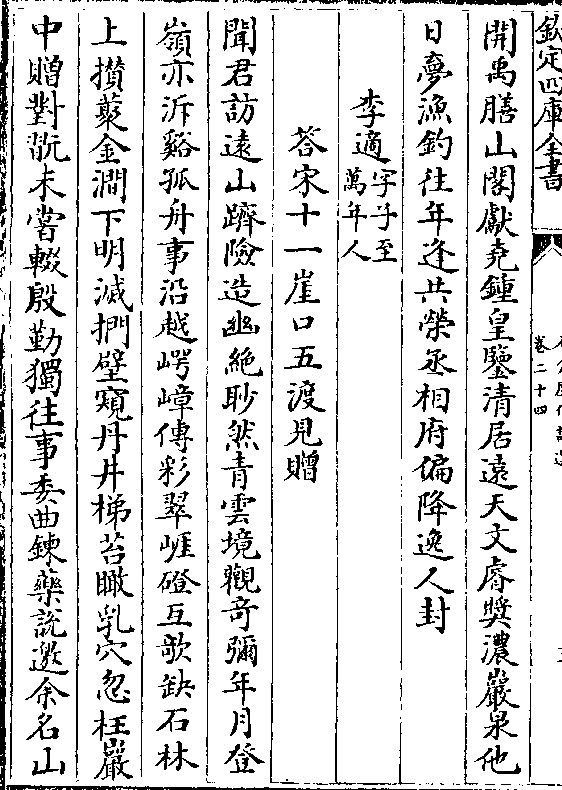 欽定四庫全書
卷二十四
開禹膳山閣獻堯鍾皇鑒清居遠天文睿奬濃巖泉他
日夢漁釣往年逢共榮丞相府偏降逸人封
李適 字子至萬年人
荅宋十一崖口五渡見贈
聞君訪遠山躋險造幽絶眇然青雲境觀竒彌年月登
嶺亦泝谿孤舟事沿越崿嶂傳彩翠崕磴互欹缺石林
上攅叢金澗下明滅捫壁窺丹井梯苔瞰乳穴忽枉巖
中贈對翫未嘗輟殷勤獨往事委曲鍊藥說邀余名山